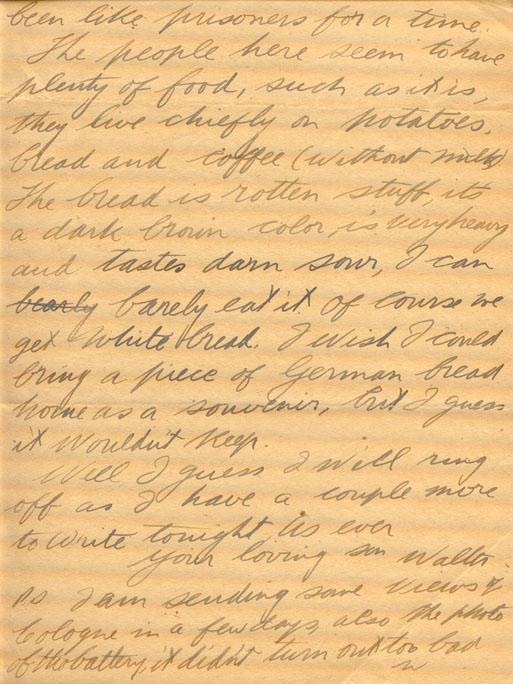 been like prisoners for a time.
The people here seem to have
plenty of food, such as it is,
they live chiefly on potatoes,
bread and coffee (without milk)
The bread is rotten stuff, its
a dark brown color, is very heavy
and tastes darn sour, I can
bearly barely eat it. Of course we
get white bread. I wish I could
bring a piece of German bread
home as a souvenir, but I guess
it wouldn't keep.
Well I guess I will ring
off as I have a couple more
to write tonight As ever
Your loving son Walter.
PS I am sending some views of
Cologne in a few days, also the photo
of the battery, it didn't turn out too bad